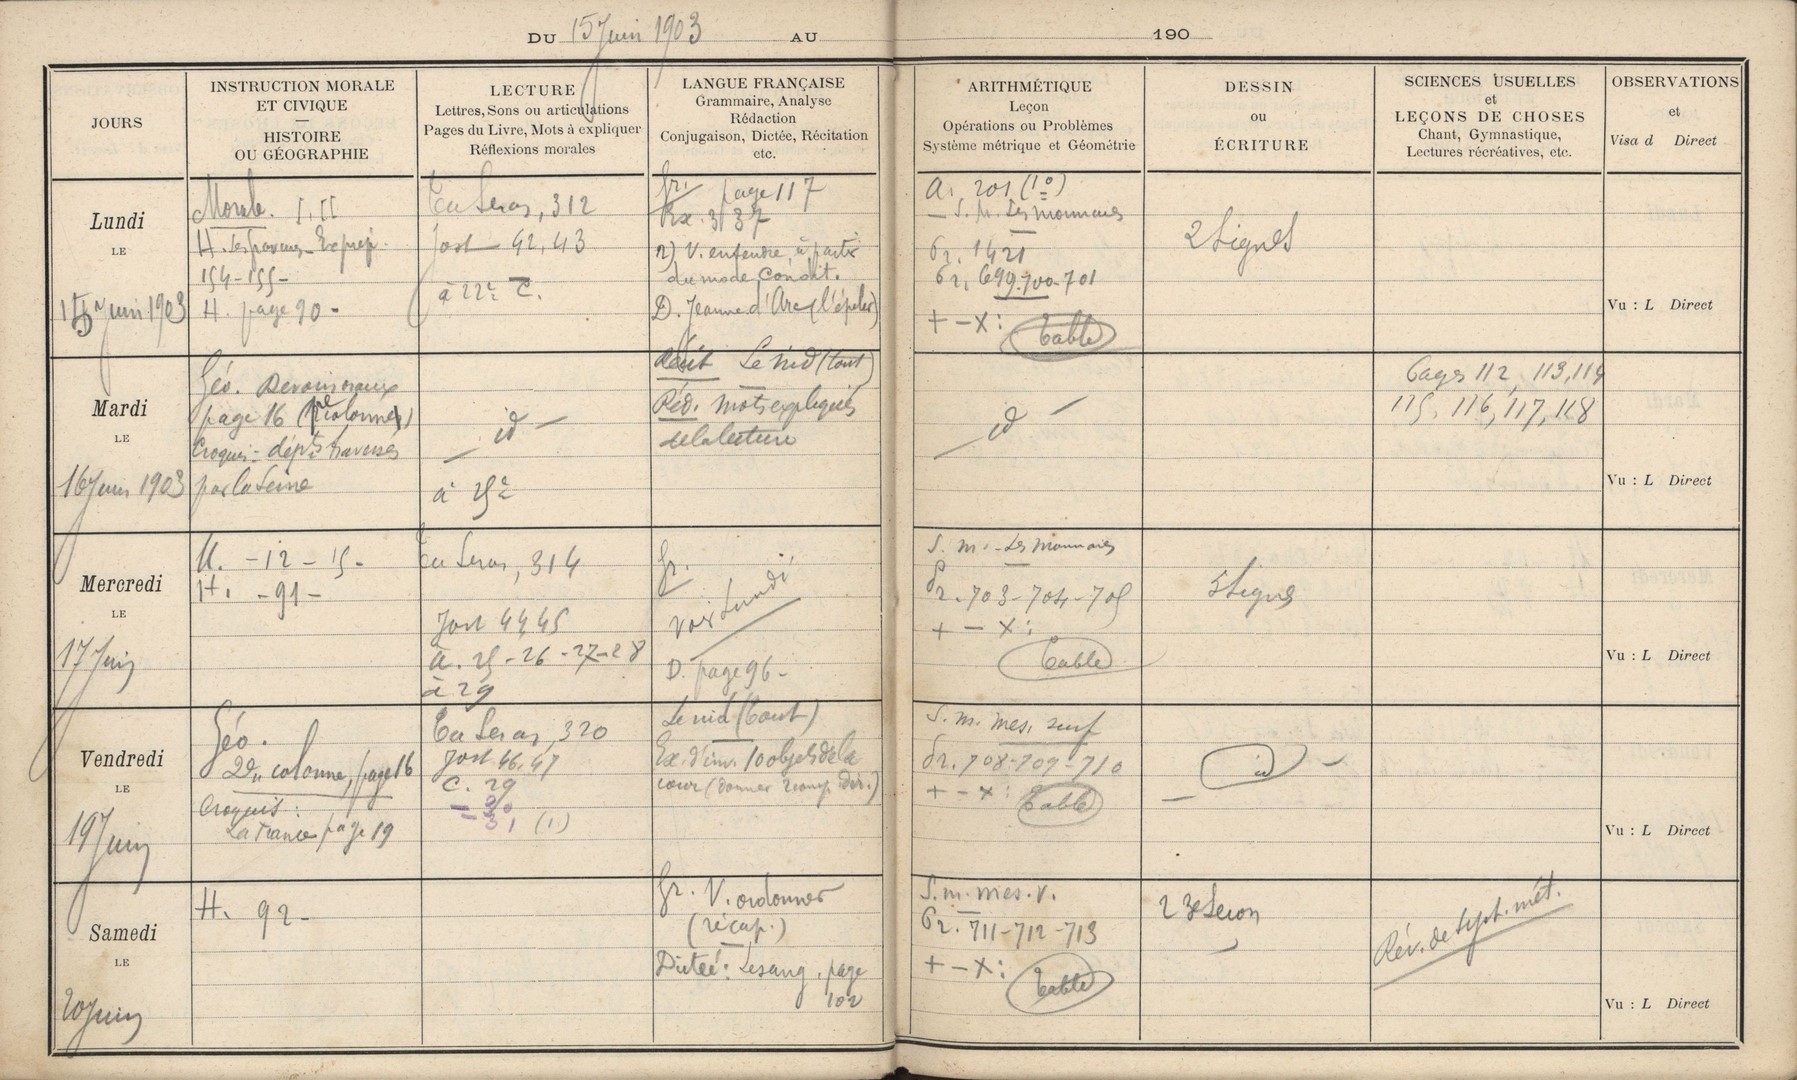 DU 15 Juin 1903 AU
190
JOURS
INSTRUCTION MORALE
ET CIVIQUE
—
HISTOIRE
OU GÉOGRAPHIE
LECTURE
Lettres, Sons ou articulations
Pages du Livre, Mots à expliquer
Réflexions morales
LANGUE FRANÇAISE
Grammaire, Analyse
Rédaction
Conjugaison, Dictée, Récitation
etc.
ARITHMÉTIQUE
Leçon
Opérations ou Problèmes
Système métrique et Géométrie
DESSIN
ou
ÉCRITURE
SCIENCES USUELLES
et
LEÇONS DE CHOSES
Chant, Gymnastique,
Lectures récréatives, etc.
OBSERVATIONS
et
Visa d Direct
Lundi
LE
15 Juin 1903
Morale. I. II
154-155-
H. page 90 -
Tu Seras, 312
Jost 42, 43
à 22e C.
Gr. page 117
Ex. 3137
V. entendre, à partir
du mode Condit.
D. Jeanne d'Arc (l'épeler)
A. 201 (1º)
— S. M. Les Monnaies
Pr. 1421
Pr. 699-700-701
+ - x : Table
2 Lignes
Vu : L Direct
Mardi
LE
16 Juin 1903
Géo.
page 16 (1re colonne)
Croquis - dépts traversés
par la Seine
id —
à 25e
Récit Le nid (tout)
Réd. Mots expliqués
de la lecture
id —
Pages 112, 113, 114
115, 116, 117, 118
Vu : L Direct
Mercredi
LE
17 Juin
M. - 12 - 15 -
H. - 91 -
Tu Seras, 314
Jost 44 45
à. 25 - 26 - 27 - 28
à 29
Gr.
voir Lundi
D. page 96 -
S. m. - Les Monnaies
Pr. 703 - 704 - 705
+ - x :
Table
5 Lignes
Vu : L Direct
Vendredi
LE
19 Juin
Géo.
2de colonne, page 16
Croquis :
La France page 19
Tu Seras, 320
Jost 46, 47
C. 29
- 30
- 31 (1)
Le nid (tout)
Ex. d'inv. 10 objets de la
cour
S. m. mes. surf
Pr. 708-709-710
+ - x : Table
— id —
Vu : L Direct
Samedi
LE
20 Juin
H. 92 -
Gr. V. ordonner
(récap.)
Dictée : Le sang, page
102
S. m. mes. v.
Pr. 711-712-713
+ - x :
Table
Rév. de Syst. mét.
Vu : L Direct